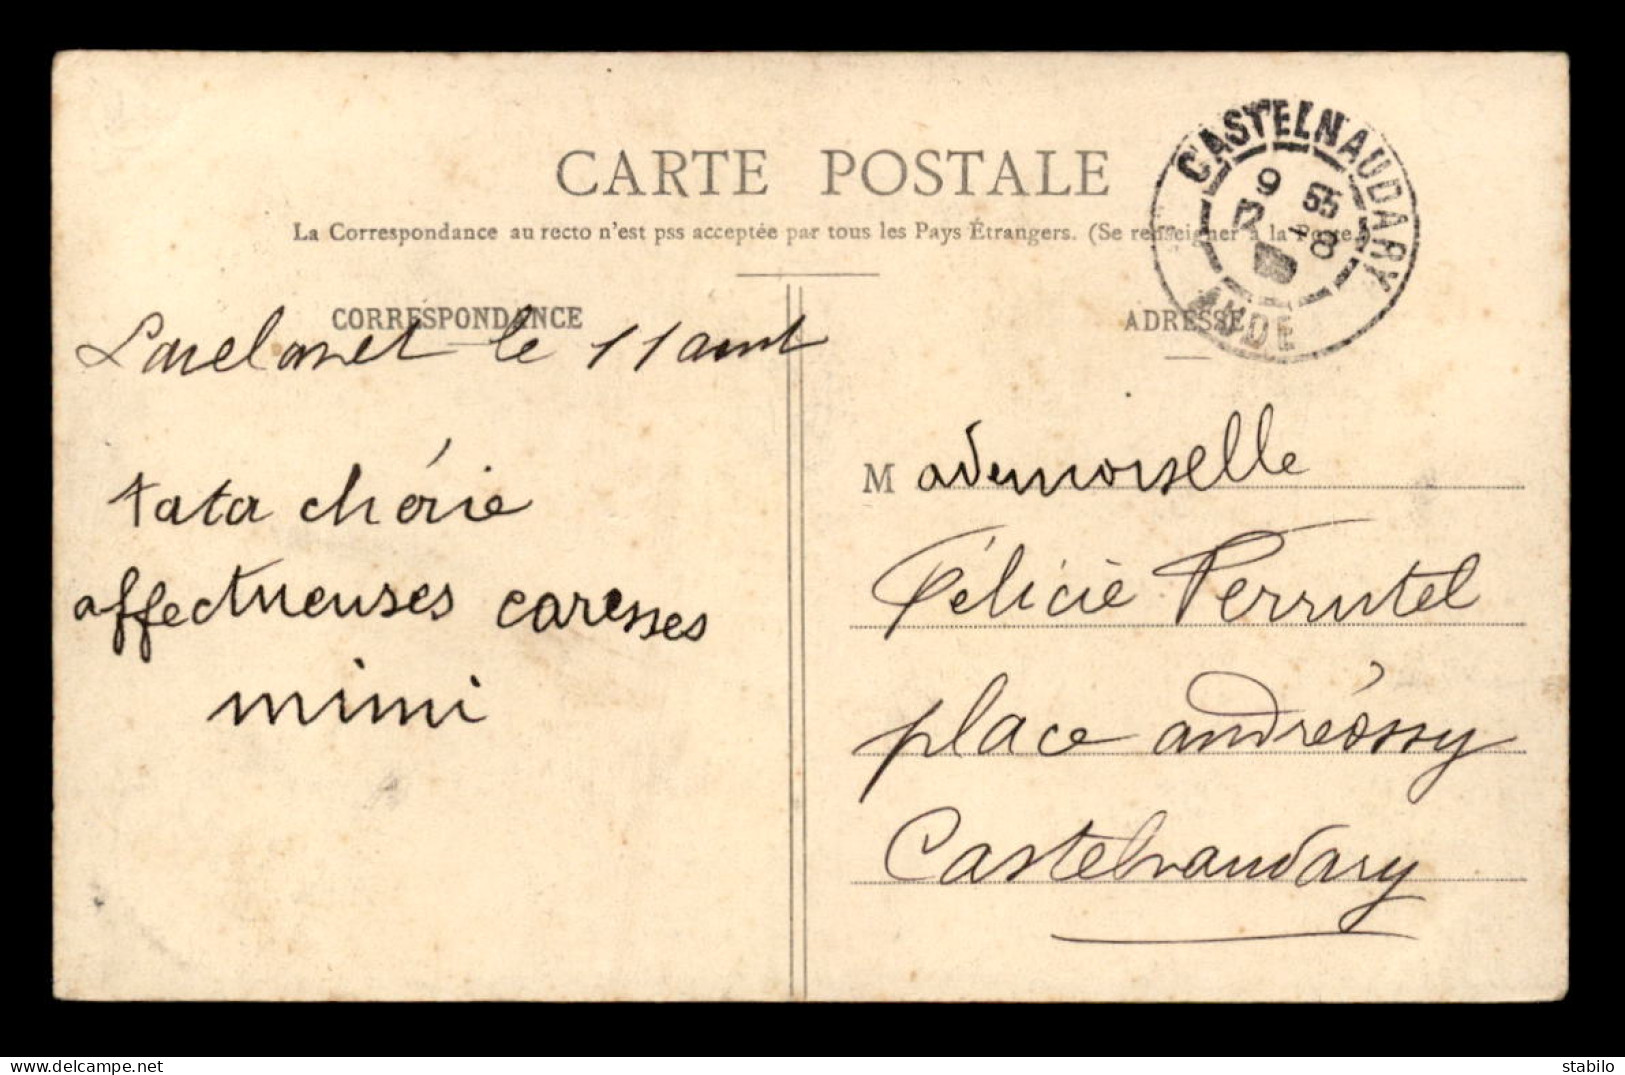 CARTE POSTALE
La Correspondance au recto n'est pss acceptée par tous les Pays Étrangers. (Se renseigner à la Poste.)
CORRESPONDANCE
Lavelanet le 11 aout
tata chérie
affectueuses caresses
mimi
CASTELNAUDARY
AUDE
9 55
-8
ADRESSE
Mademoiselle
Félicie Perrutel
place andréossy
Castelnaudary
stabilo
delcampe.net